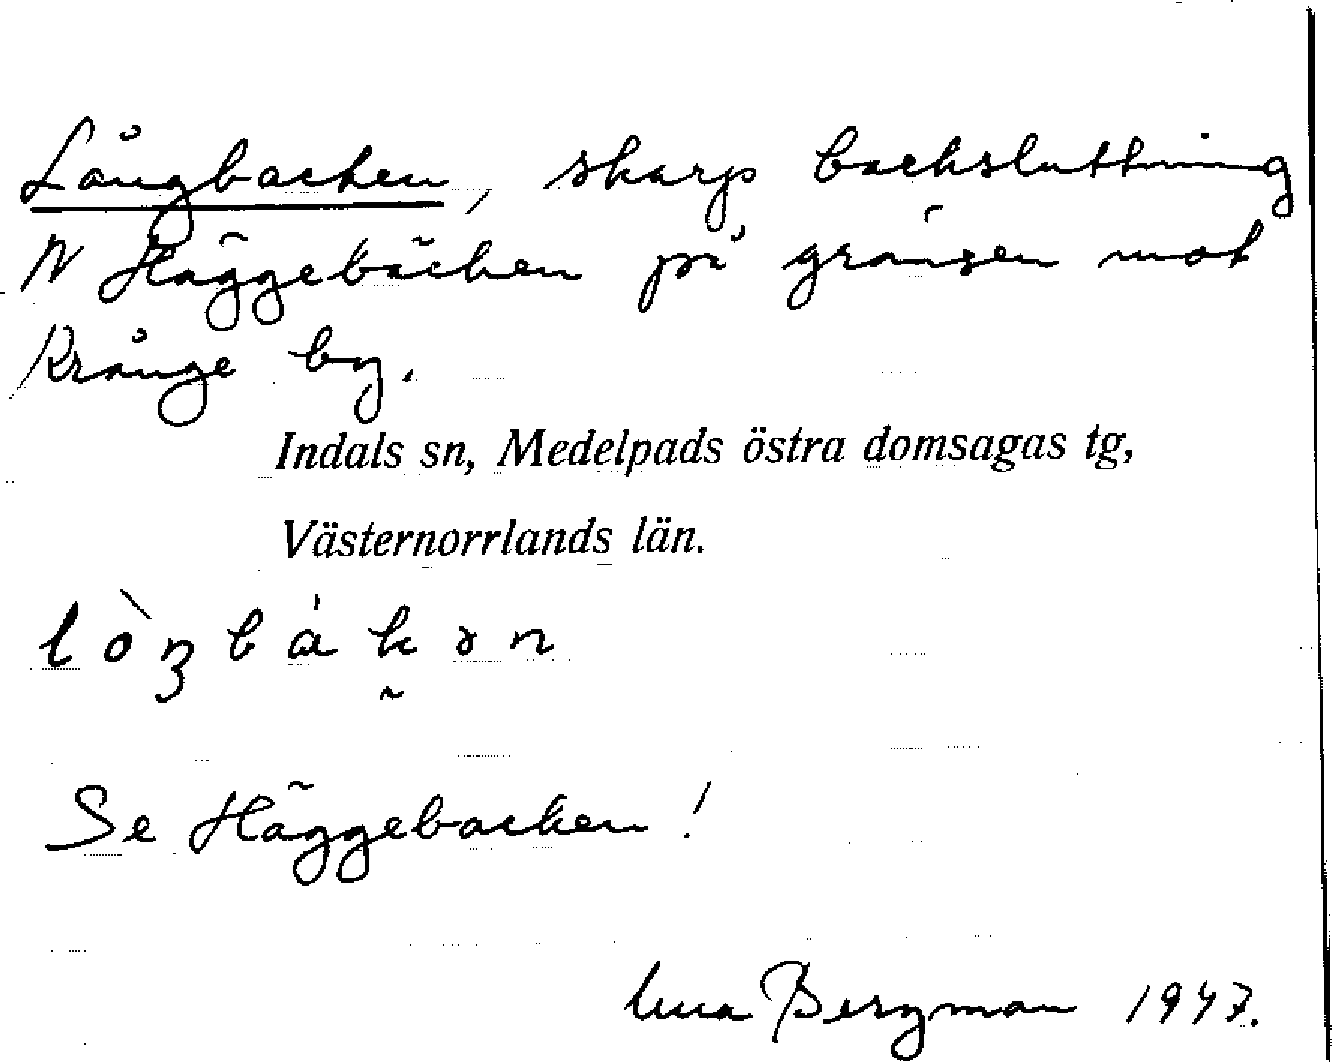 Långbacken, skarp backsluttning
N Häggebäcken på gränsen mot
Krånge by.
Indals sn, Medelpads östra domsagas tg,
Västernorrlands län.
lòŋbákən
Se Häggebacken!
Bergman 1947.